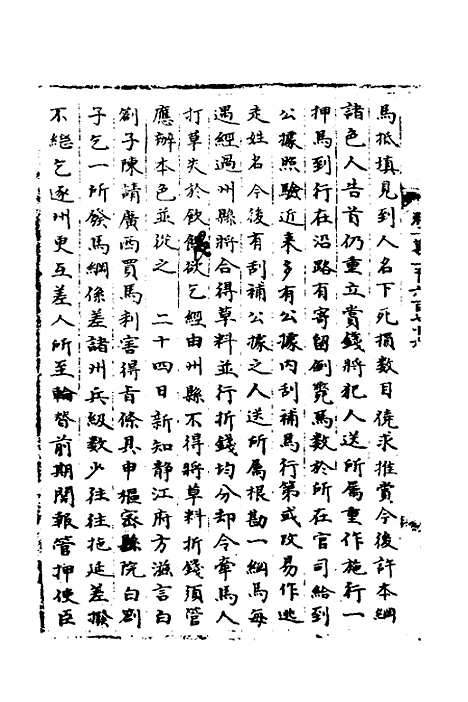 馬抵填見到人名下死損数目僥求推賞今後許本綱
諸色人告首仍重立賞錢將犯人送所属重作施行一
押馬到行在沿路有寄留倒斃馬数於所在官司給到
公據照驗近来多有公據内刮補馬行第或改易作逃
走姓名今後有刮補公據之人送所属根勘一綱馬每
遇經過州縣將合得草料並行折錢均分却令牽馬人
打草夾於飲餵欲乞經由州縣不得將草料折錢須管
應辦本色並從之 二十四日新知静江府方滋言白
劄子陳請廣西買馬利害得旨條具申樞密院白劄
子乞一所發馬綱係差諸州兵級数少往往拖延差撥
不継乞逐州更互差人所至輪替前期関報管押使臣